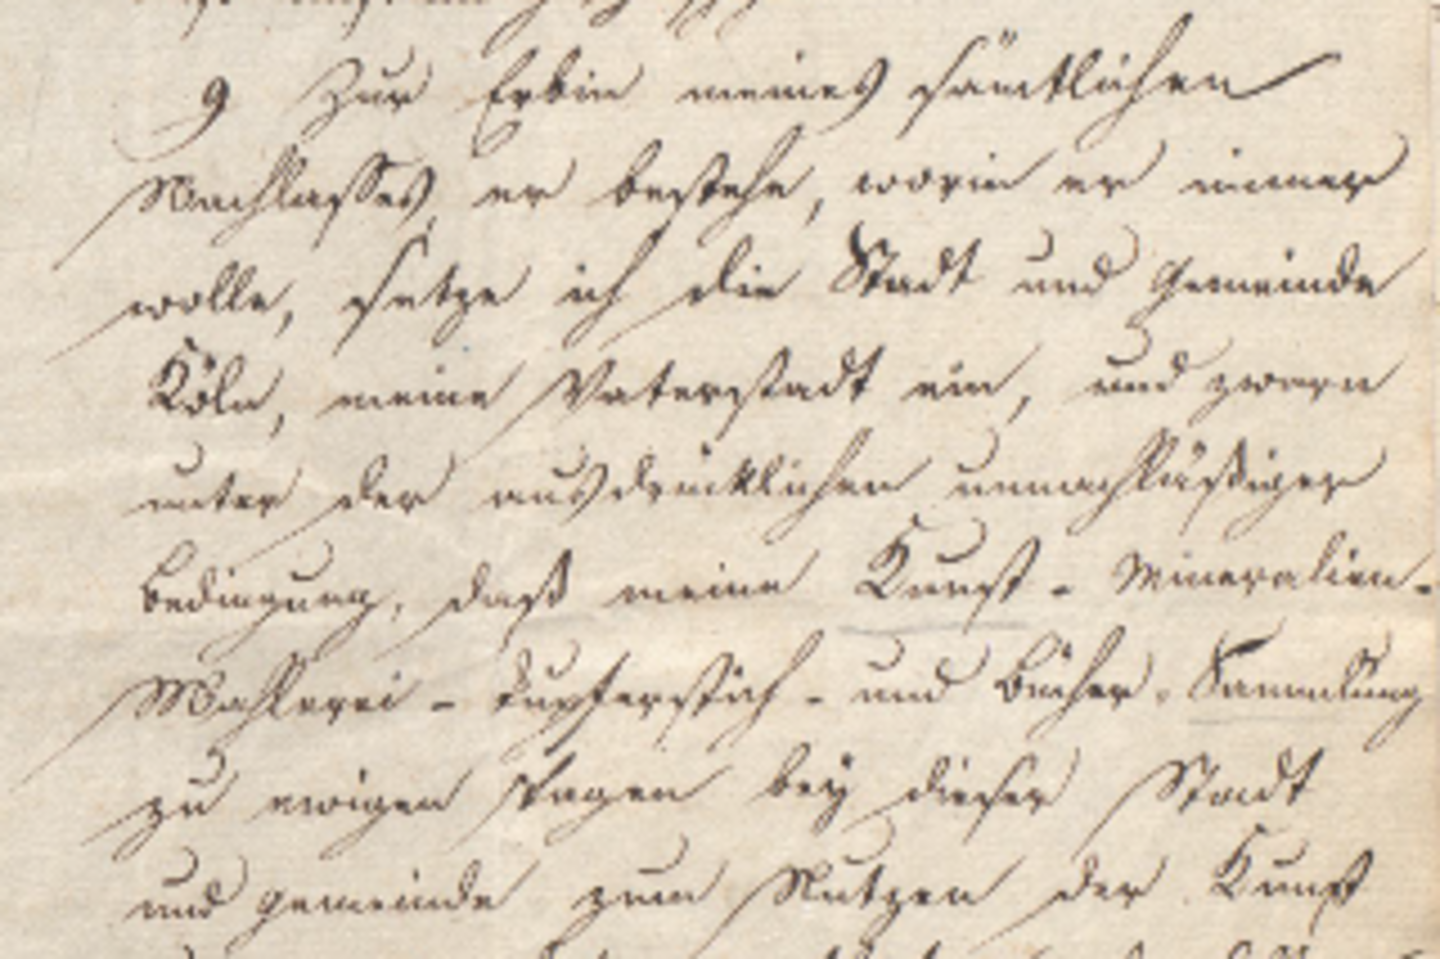 9 Zur Erbin meines sämtlichen
Nachlasses, er bestehe, worin er immer
wolle, setze ich die Stadt und Gemeinde
Köln, meine Vaterstadt ein, und zwarn
unter der ausdrücklichen unnachläßiger
Bedingung, daß meine Kunst - Mineralien-
Mahlerei - Kupferstich - und Bücher-Sammlung
zu ewigen Tagen bey dieser Stadt
und Gemeinde zum Nutzen der Kunst